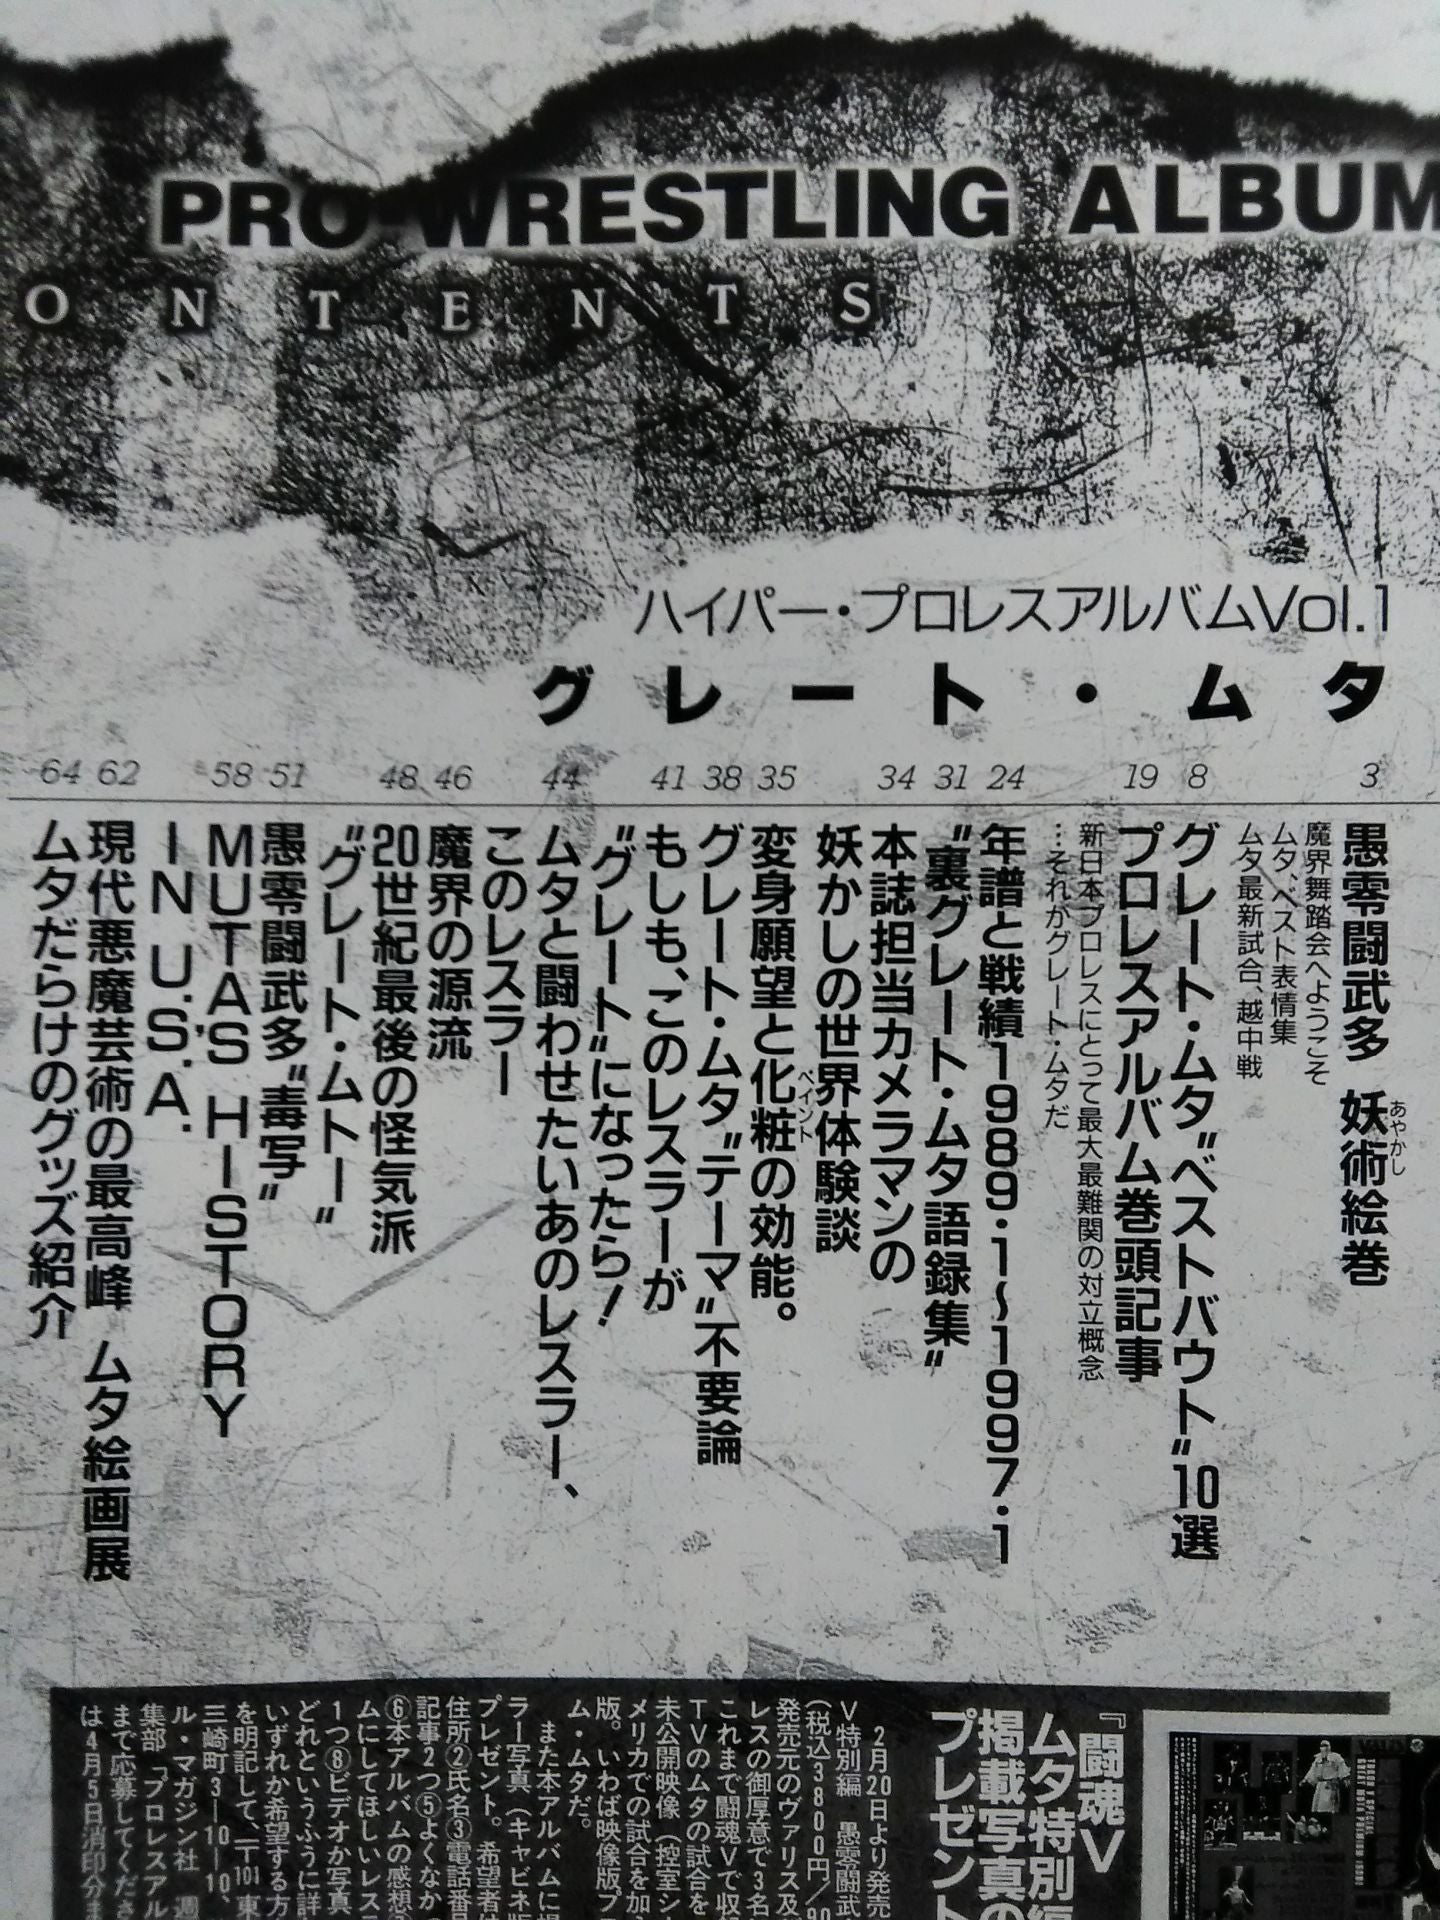 PRO-WRESTLING ALBUM
ONTENTS
ハイパー・プロレスアルバムVol.1
グレート・ムタ
3
愚零闘武多 妖術絵巻
あやかし
魔界舞踏会へようこそ
ムタ、ベスト表情集
ムタ最新試合、越中戦
8
グレート・ムタ〝ベストバウト〟10選
19
プロレスアルバム巻頭記事
新日本プロレスにとって最大最難関の対立概念
…それがグレート・ムタだ
24
年譜と戦績1989・1〜1997・1
31
〝裏グレート・ムタ語録集〟
34
本誌担当カメラマンの
妖かしの世界体験談
35
変身願望と化粧の効能。
ペイント
38
グレート・ムタ〝テーマ〟不要論
41
もしも、このレスラーが
〝グレート〟になったら！
44
ムタと闘わせたいあのレスラー、
このレスラー
46
魔界の源流
48
20世紀最後の怪気派
〝グレート・ムトー〟
51
愚零闘武多〝毒写〟
58
MUTA'S HISTORY
IN U.S.A.
62
現代悪魔芸術の最高峰 ムタ絵画展
64
ムタだらけのグッズ紹介
『闘魂V
ムタ特別編
掲載写真の
プレゼント
2月20日より発売
V特別編 愚零闘武
(税込3800円/90
発売元のヴァリス及
レスの御厚意で3名
これまで闘魂Vで収
TVのムタの試合を
未公開映像(控室シ
メリカでの試合を加
版。いわば映像版プ
ム・ムタだ。
また本アルバムに掲
ラー写真(キャビネ版
プレゼント。希望者は
住所②氏名③電話番号
記事2つ⑤よくなかっ
⑥本アルバムの感想⑦
ムにしてほしいレス
1つ⑧ビデオか写真
どれというふうに詳
いずれか希望する方
を明記して、〒101東
三崎町3-10-10、
ル・マガジン社 週
集部「プロレスアル
まで応募してくださ
は4月5日消印分ま